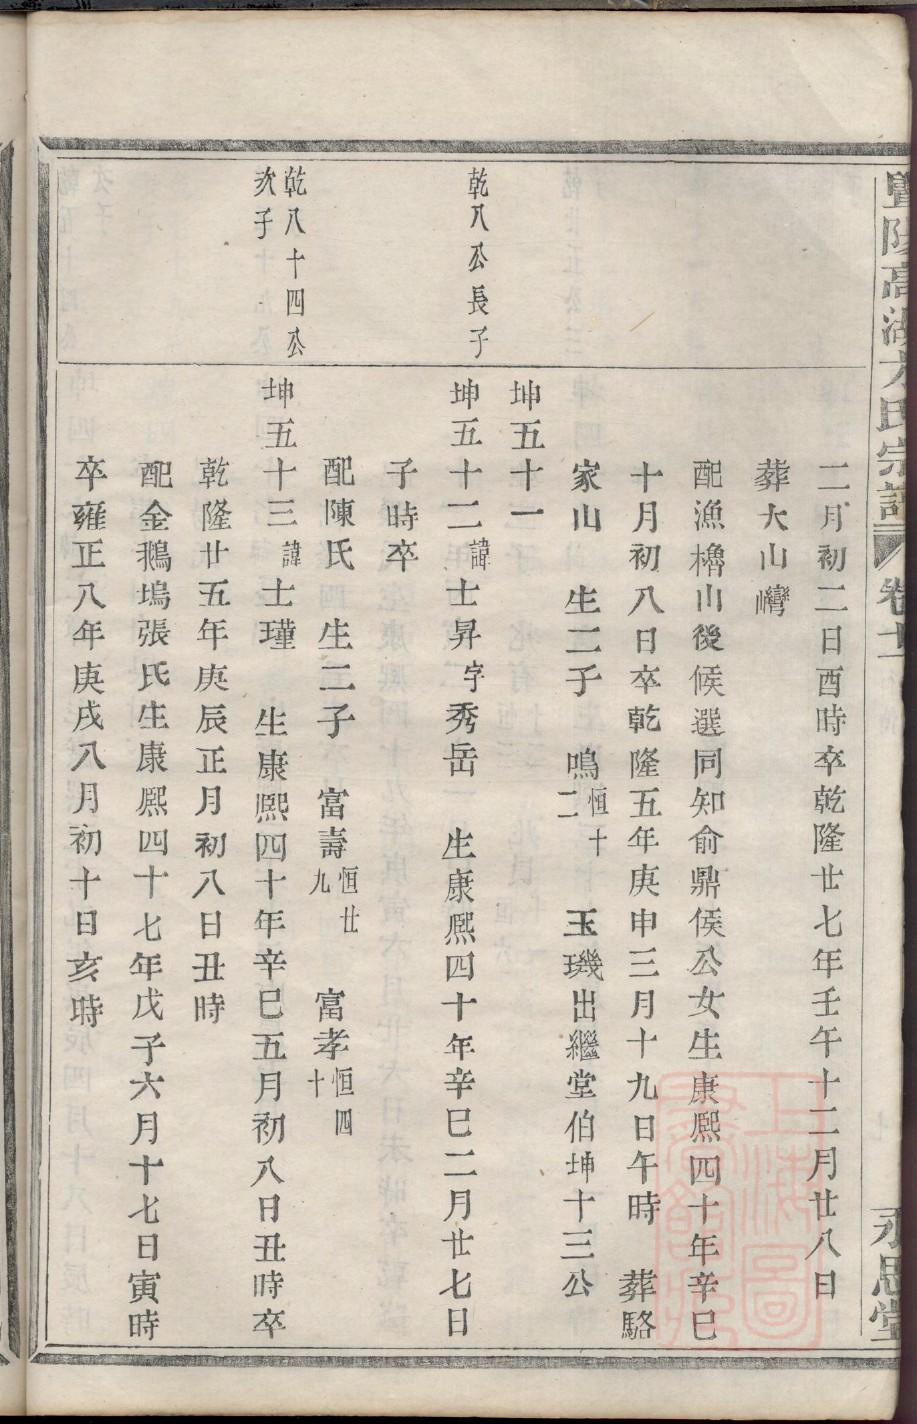 暨陽高湖方氏宗譜
卷十
永思堂
二月初二日酉時卒乾隆廿七年壬午十二月廿八日
葬大山灣
配漁櫓山後候選同知俞鼎侯公女生康熙四十年辛巳
十月初八日卒乾隆五年庚申三月十九日午時 葬駱
家山 生二子 鳴恒十二 玉璣出繼堂伯坤十三公
坤五十一
乾八公長子
坤五十二諱士昇字秀岳 生康熙四十年辛巳二月廿七日
子時卒
配陳氏生二子 富壽恒廿九 富孝恒四十
乾八十四公
次子
坤五十三諱士瑾 生康熙四十年辛巳五月初八日丑時卒
乾隆廿五年庚辰正月初八日丑時
配金鵝塢張氏生康熙四十七年戊子六月十七日寅時
卒雍正八年庚戌八月初十日亥時